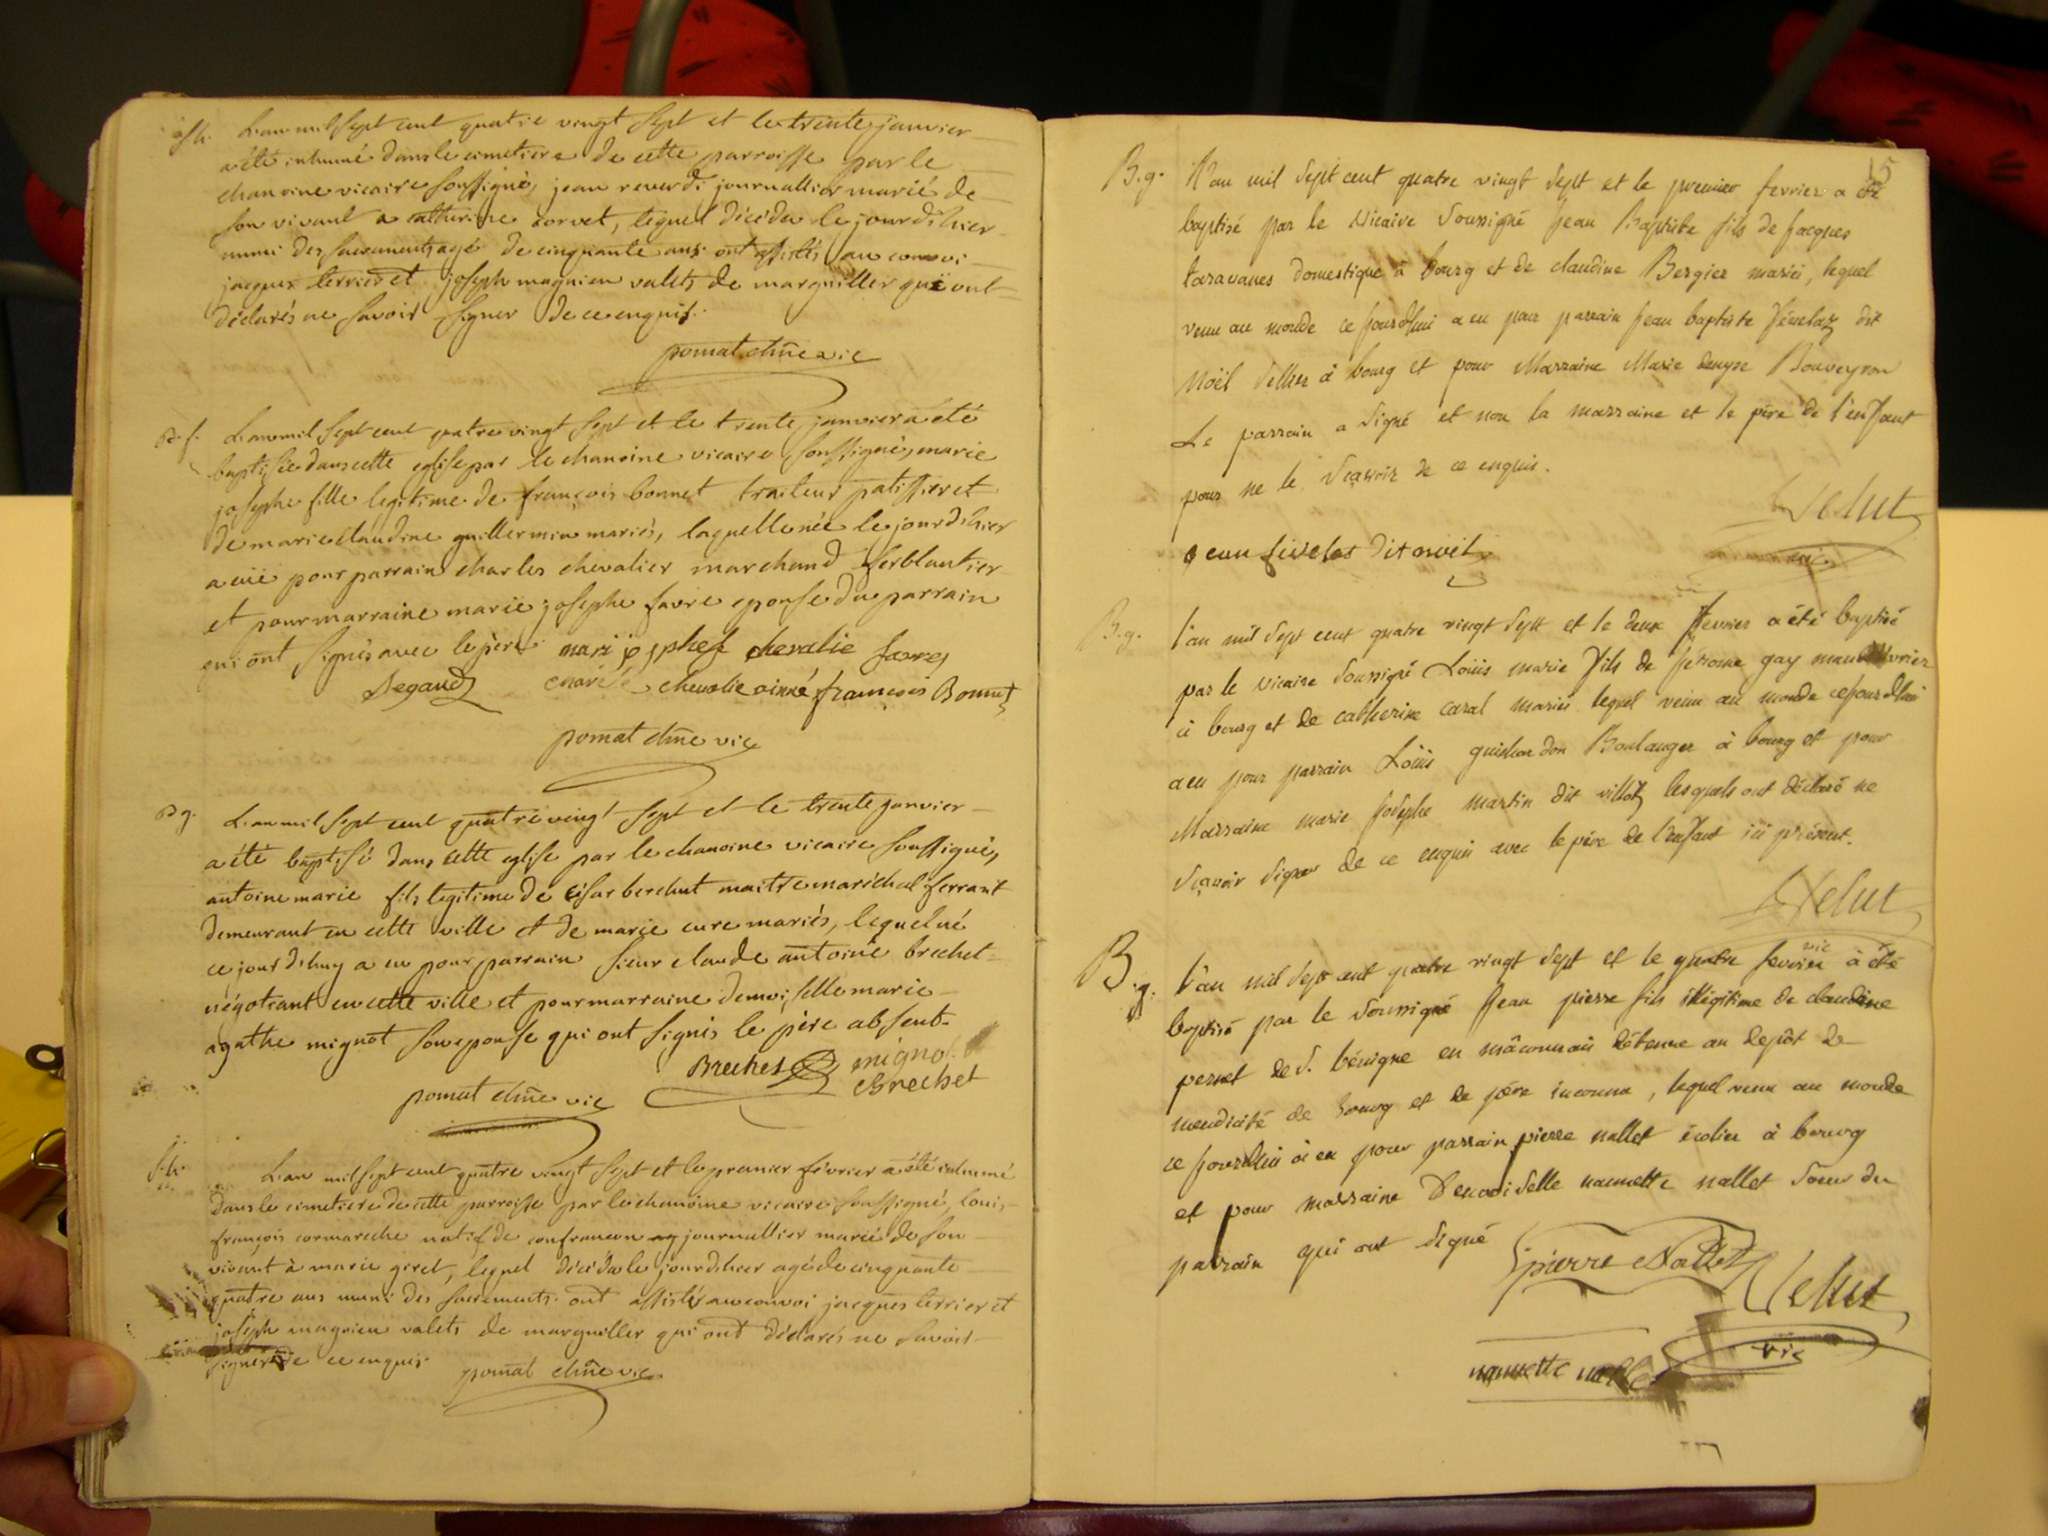 L'an mil sept cent quatre vingt sept et le trente janvier
a été inhumé dans le cimetiere de cette parroisse par le
chanoine vicaire soussigné, jean reverdi journallier marié de
son vivant a catherine corvet, lequel décéda le jour d'hier
muni des sacements agé de cinquante ans ont assistés au convoi
jacques terrier et joseph magnien valets de marguiller qui ont
déclarés ne savoir signer de ce enquis.
pomat chne vic
B. f. L'an mil sept cent quatre vingt sept et le trente janvier a été
baptisée dans cette eglise par le chanoine vicaire soussigné, marie
josephe fille legitime de françois bonnet traiteur patissier et
de marie claudine guillermin mariés, laquelle née le jour d'hier
a eüe pour parrain charles chevalier marchand ferblantier
et pour marraine marie josephe favre epouse du parrain
qui ont signés avec le père marijosphe chevalie favre
Degaud charle chevalie ainné françois Bonnet
pomat chne vic
B g. L'an mil sept cent quatre vingt sept et le trente janvier
a été baptisé dans cette eglise par le chanoine vicaire soussigné,
antoine marie fils legitime de César berchut maitre maréchal ferrant
demeurant en cette ville et de marie cure mariés, lequel né
ce jourd'huy a eu pour parrain sieur claude antoine brechet
négotiant en cette ville et pour marraine demoiselle marie
agathe mignot son epouse qui ont signés le père absent.
Brechet mignot
Brechet
pomat chne vic
S. h. L'an mil sept cent quatre vingt sept et le premier février a été inhumé
dans le cimetiere de cette parroisse par le chanoine vicaire soussigné, louis
françois cormareche natif de confrancon journallier marié de son
vivant à marie giret, lequel décéda le jour d'hier agé de cinquante
quatre ans muni des sacrements. ont assisté au convoi jacques terrier et
joseph magnien valets de marguiller qui ont déclarés ne savoir
signer de ce enquis.
pomat chne vic
15
B. g. L'an mil sept cent quatre vingt sept et le premier fevrier a été
baptisé par le vicaire soussigné jean Baptiste fils de jacques
taravanes domestique à bourg et de claudine Bergier mariés, lequel
venu au monde ce jourdhui a eu pour parrain jean baptiste févelat dit
Noël sellier à bourg et pour Marraine Marie denyse Bouveyron
Le parrain a signé et non la marraine et le père de l'enfant
pour ne le sçavoir de ce enquis.
Velut
vic
jean fivelat dit noel
B. g. l'an mil sept cent quatre vingt sept et le deux fevrier a été baptisé
par le vicaire soussigné Loüis marie fils de jérome gay manouvrier
à bourg et de catherine caral mariés lequel venu au monde cejourdhui
a eu pour parrain Loüis guichardon Boulanger à bourg et pour
Marraine marie josephe martin dit villot lesquels ont déclaré ne
sçavoir signer de ce enquis avec le père de l'enfant ici présent.
Velut
vic
B. g. l'an mil sept cent quatre vingt sept et le quatre fevrier à été
baptisé par le soussigné jean pierre fils illégitime de claudine
pernet de s. bénigne en mâconnais détenue au depôt de
mendicité de bourg et de père inconnu, lequel venu au monde
ce jourdhui à eu pour parrain pierre nallet écolier à bourg
et pour marraine Demoiselle nannette nallet soeur du
parrain qui ont signé pierre Nallet
Velut
vic
nannette nallet